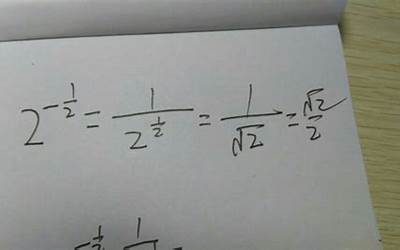 2^{-\frac{1}{2}} = \frac{1}{2^{\frac{1}{2}}} = \frac{1}{\sqrt{2}} = \frac{\sqrt{2}}{2}